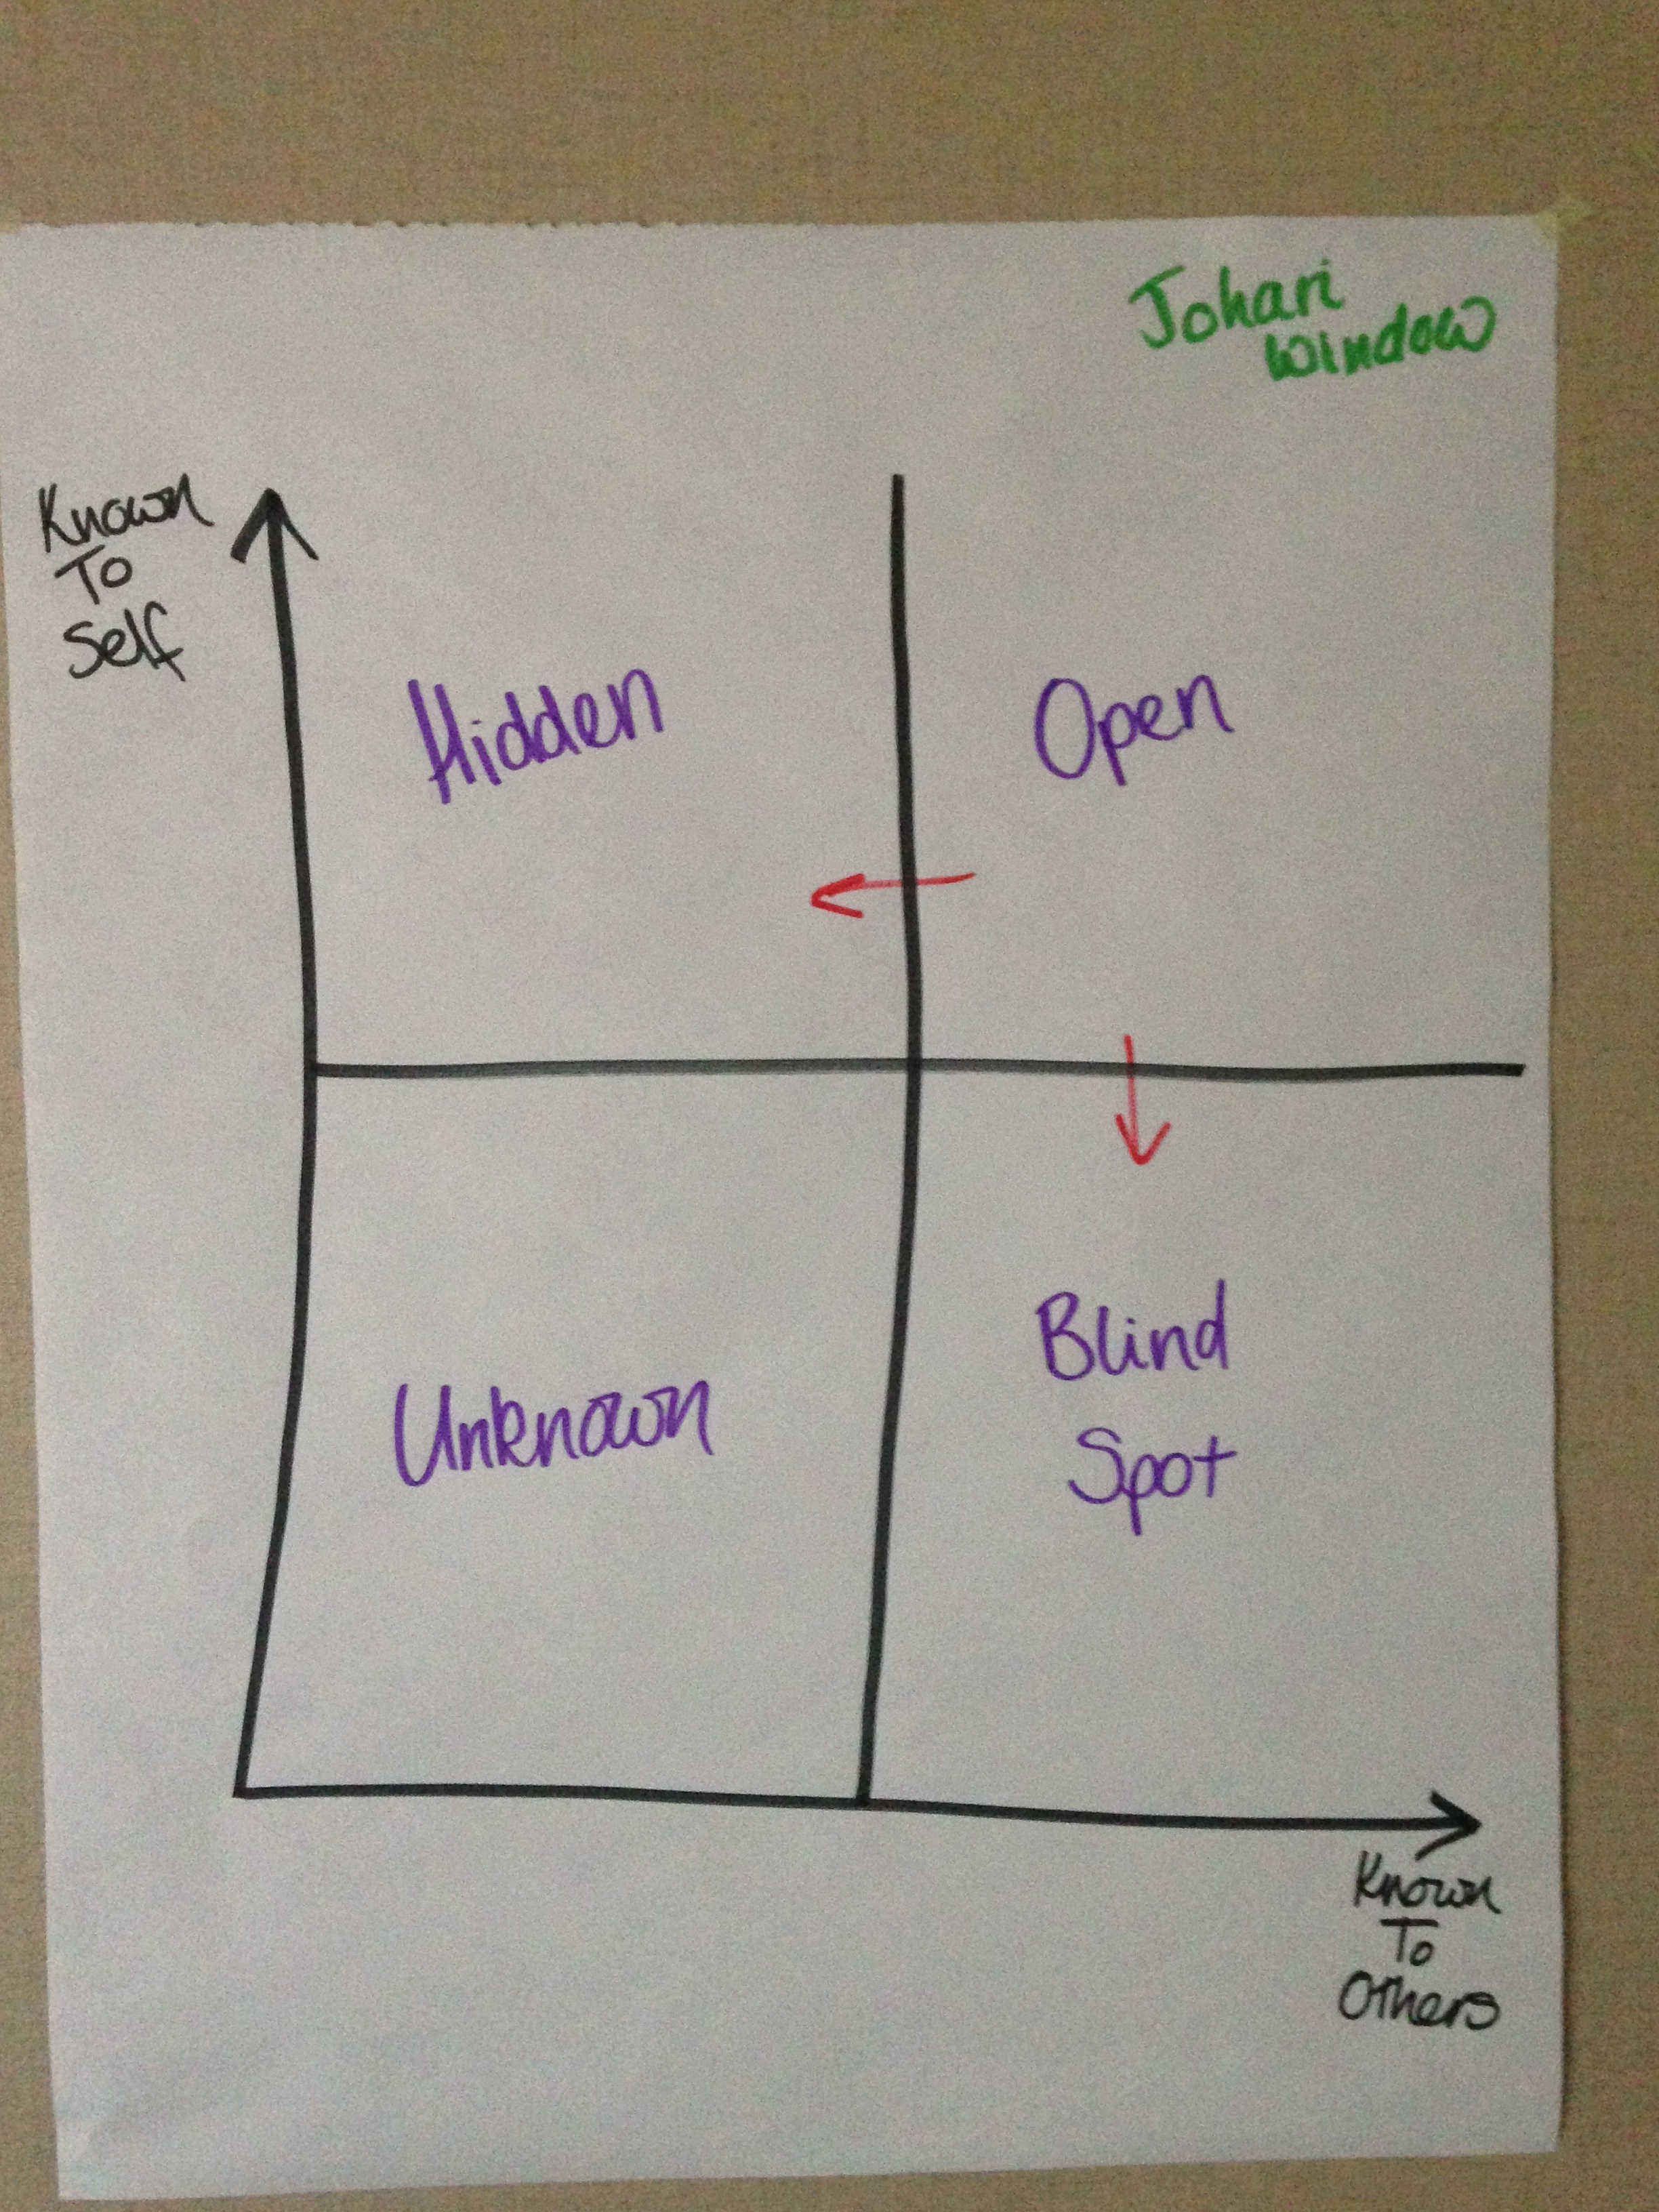 Johari
Window
Known
To
Self
Hidden
Open
Unknown
Blind
Spot
Known
To
Others